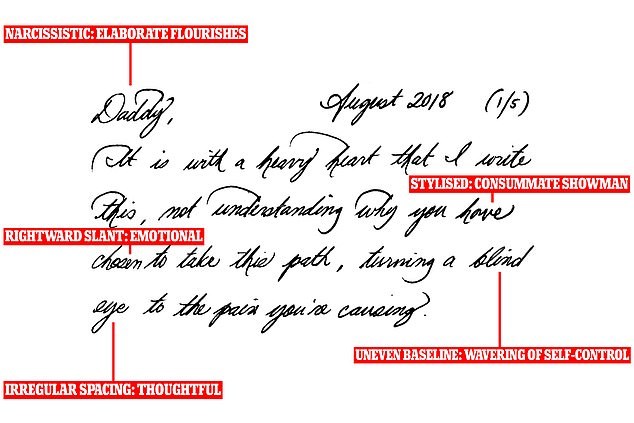 NARCISSISTIC: ELABORATE FLOURISHES
Daddy,
August 2018 (1/5)
It is with a heavy heart that I write
STYLISED: CONSUMMATE SHOWMAN
this, not understanding why you have
RIGHTWARD SLANT: EMOTIONAL
chosen to take this path, turning a blind
eye to the pain you're causing.
UNEVEN BASELINE: WAVERING OF SELF-CONTROL
IRREGULAR SPACING: THOUGHTFUL